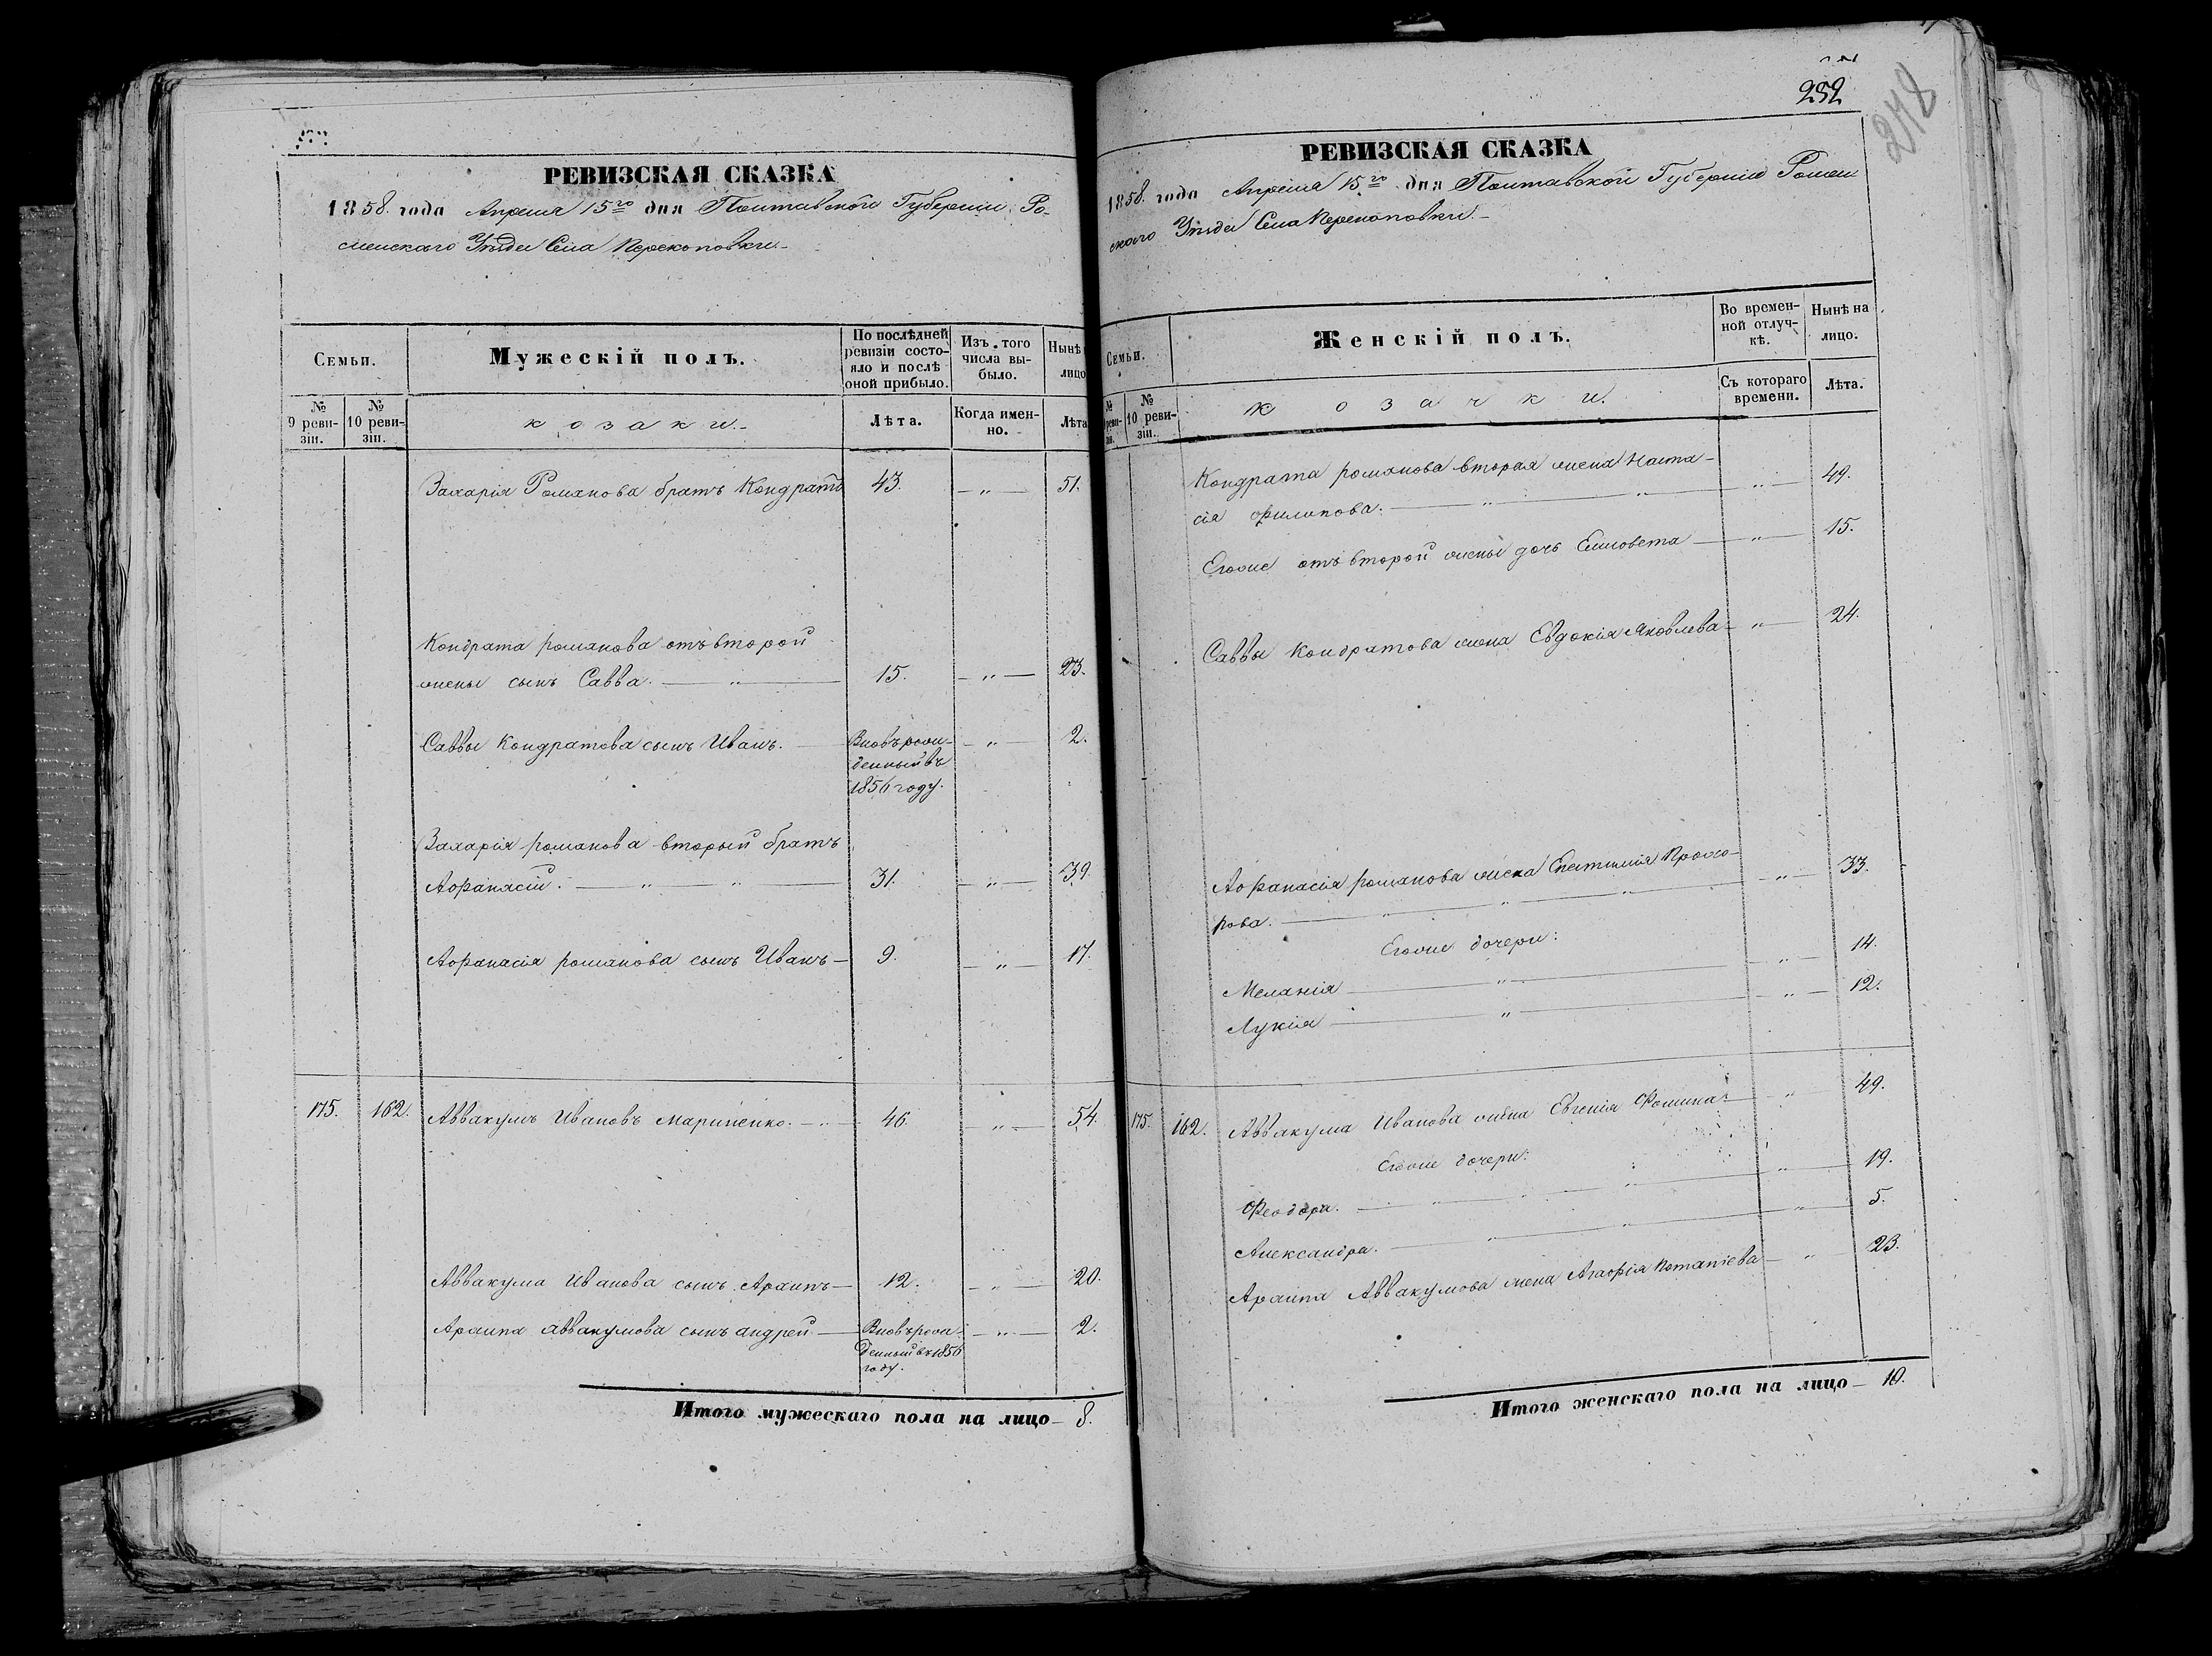 РЕВИЗСКАЯ СКАЗКА
1858. года Апреля 15го дня Полтавской Губернии, Ро-
менскаго Уѣзда Села Перекоповки.-
Семьи.
Мужескій полъ.
По послѣдней
ревизіи состо-
яло и послѣ
оной прибыло.
Изъ того
числа вы-
было.
Нынѣ
лицо
№
9 реви-
зіи.
№
10 реви-
зіи.
козаки.-
Лѣта.
Когда имен-
но.
Лѣта
Захарія Романова братъ Кондратъ 43. - „ - 51.
Кондрата романова отъ второй
жены сынъ Савва. - „ - 15. - „ - 23.
Саввы Кондратова сынъ Иванъ. - Вновьрож- - „ - 2.
денный въ
1856 году.
Захарія романова вторый братъ
Афанасій. - „ - „ - 31. - „ - 39.
Афанасія романова сынъ Иванъ - 9. - „ - 17.
175. 162. Аввакумъ Ивановъ Мариненко. - „ - 46. - „ - 54.
Аввакума Иванова сынъ Архипъ - 12. - „ - 20.
Архипа аввакумова сынъ андрей - Вновьрож- - „ - 2.
денный въ 1856
году.
Итого мужескаго пола на лицо - 8.
252
248
РЕВИЗСКАЯ СКАЗКА
1858. года Апреля 15го дня Полтавской Губерніи Ромен
скаго Уѣзда Села Перекоповки.-
Семьи.
Женскій полъ.
Во времен-
ной отлуч-
кѣ.
Нынѣ на
лицо.
№
реви-
зіи.
№
10 реви-
зіи.
козачки.
Съ котораго
времени.
Лѣта.
Кондрата романова вторая жена Наста-
сія Филипова. - „ - „ - „ - 49.
Егоже отъ второй жены дочь Елисовета - „ - 15.
Саввы Кондратова жена Евдокія Яковлева - „ - 24.
Афанасія романова жена Епистимія Прохо-
рова. - „ - „ - „ - „ - 33.
Егоже дочери:
Меланія - „ - „ - 14.
Лукія - „ - „ - 12.
175. 162. Аввакума Иванова жена Евгенія Фомина - „ - 49.
Егоже дочери:
Феодора. - „ - „ - „ - „ - 19.
Александра. - „ - „ - „ - 5.
Архипа Аввакумова жена Агафія Потапіева - „ - 23.
Итого женскаго пола на лицо - 10.